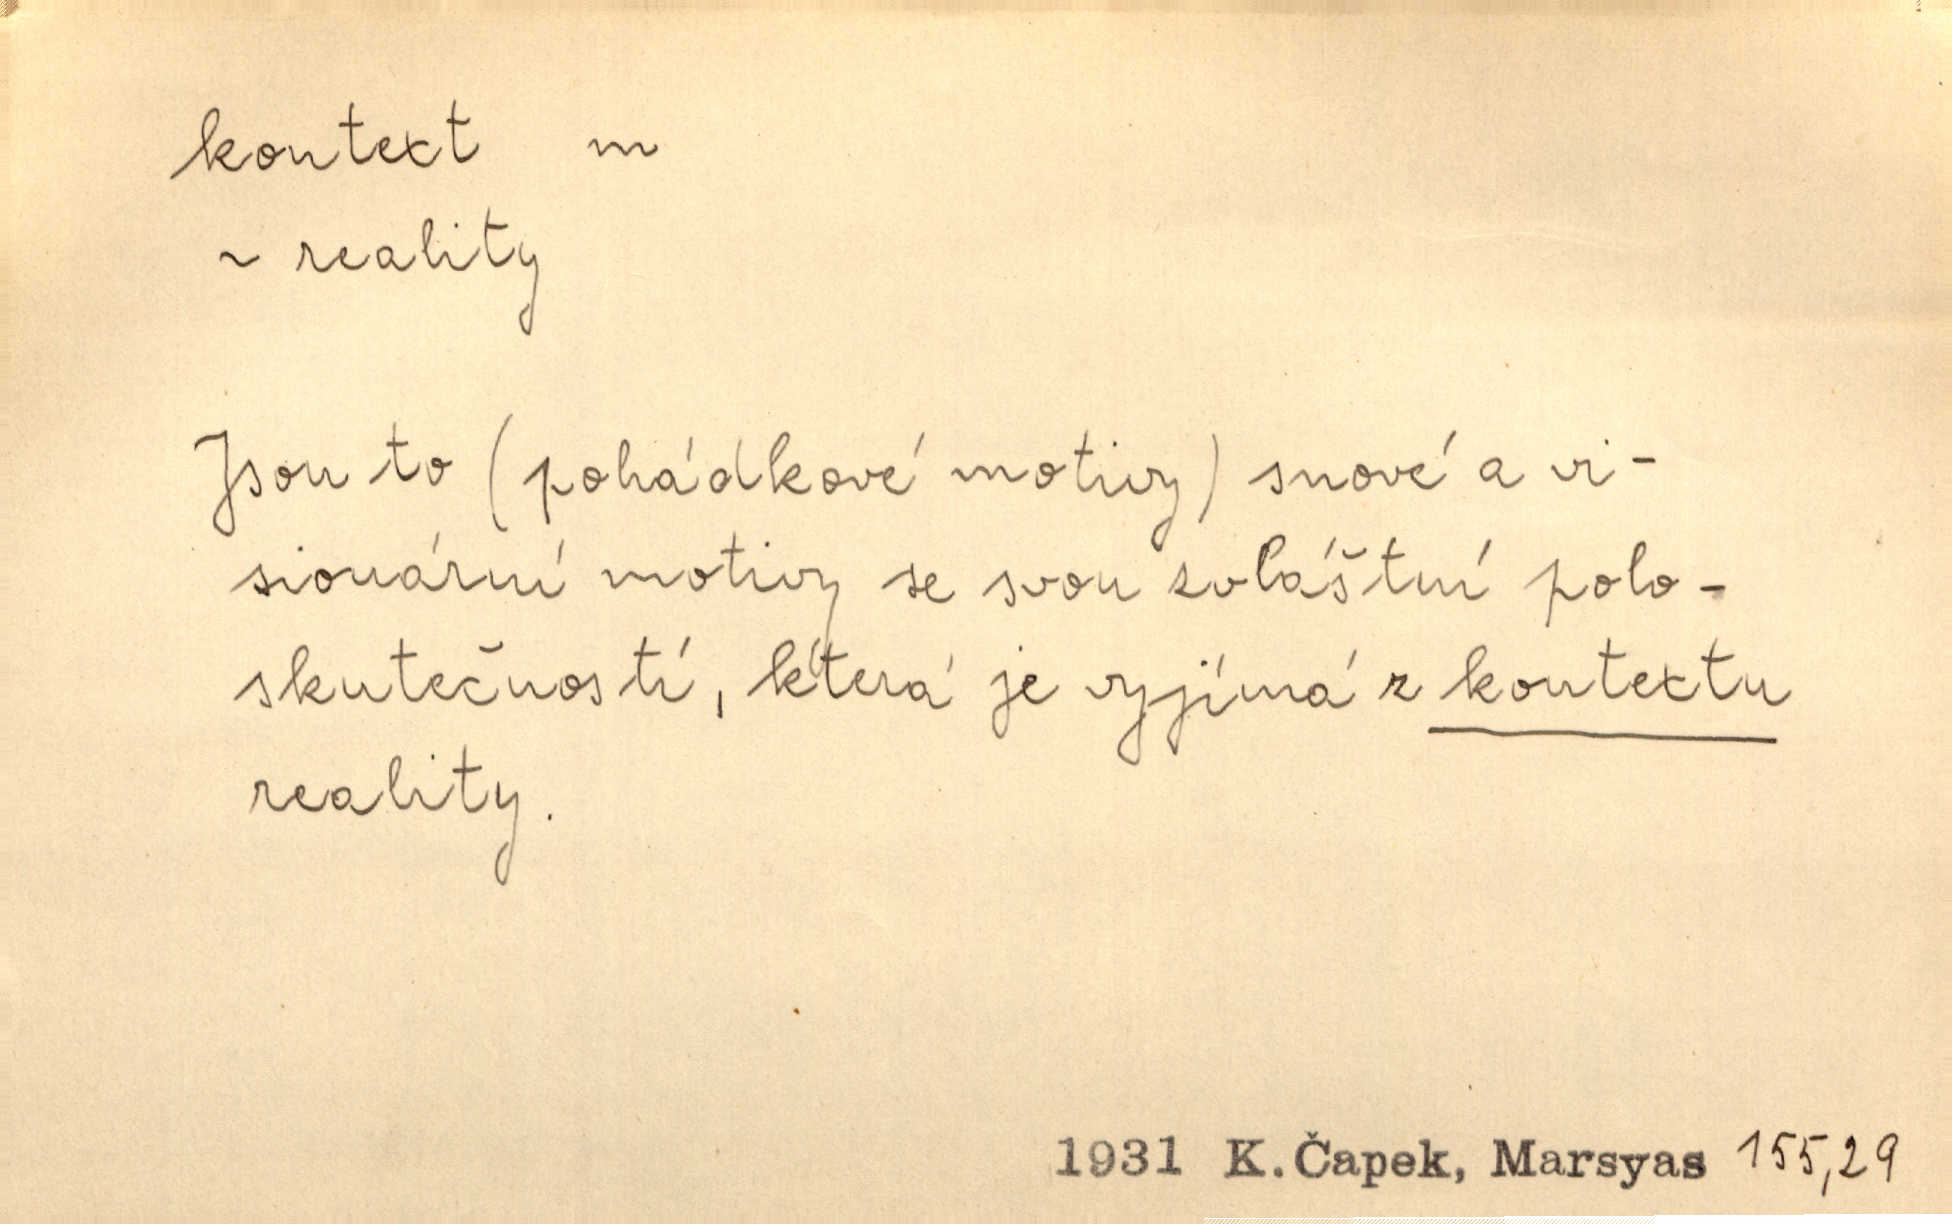 kontext m
~ reality
Jsou to (pohádkové motivy) snové a vi-
sionární motivy se svou zvláštní polo-
skutečností, která je vyjímá z kontextu
reality.
1931 K. Čapek, Marsyas 155,29